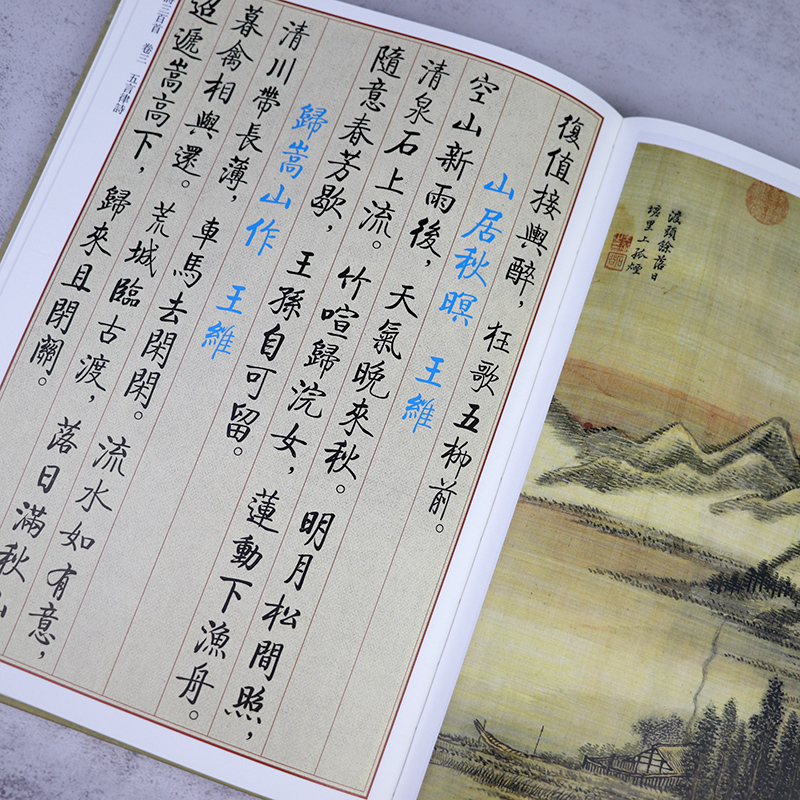 復值接輿醉，狂歌五柳前。
山居秋暝 王維
空山新雨後，天氣晚來秋。明月松間照，
清泉石上流。竹喧歸浣女，蓮動下漁舟。
隨意春芳歇，王孫自可留。
歸嵩山作 王維
清川帶長薄，車馬去閑閑。流水如有意，
暮禽相與還。荒城臨古渡，落日滿秋山
迢遞嵩高下，歸來且閉關。
詩三百首 卷三 五言律詩
渡頭餘落日
墟里上孤煙